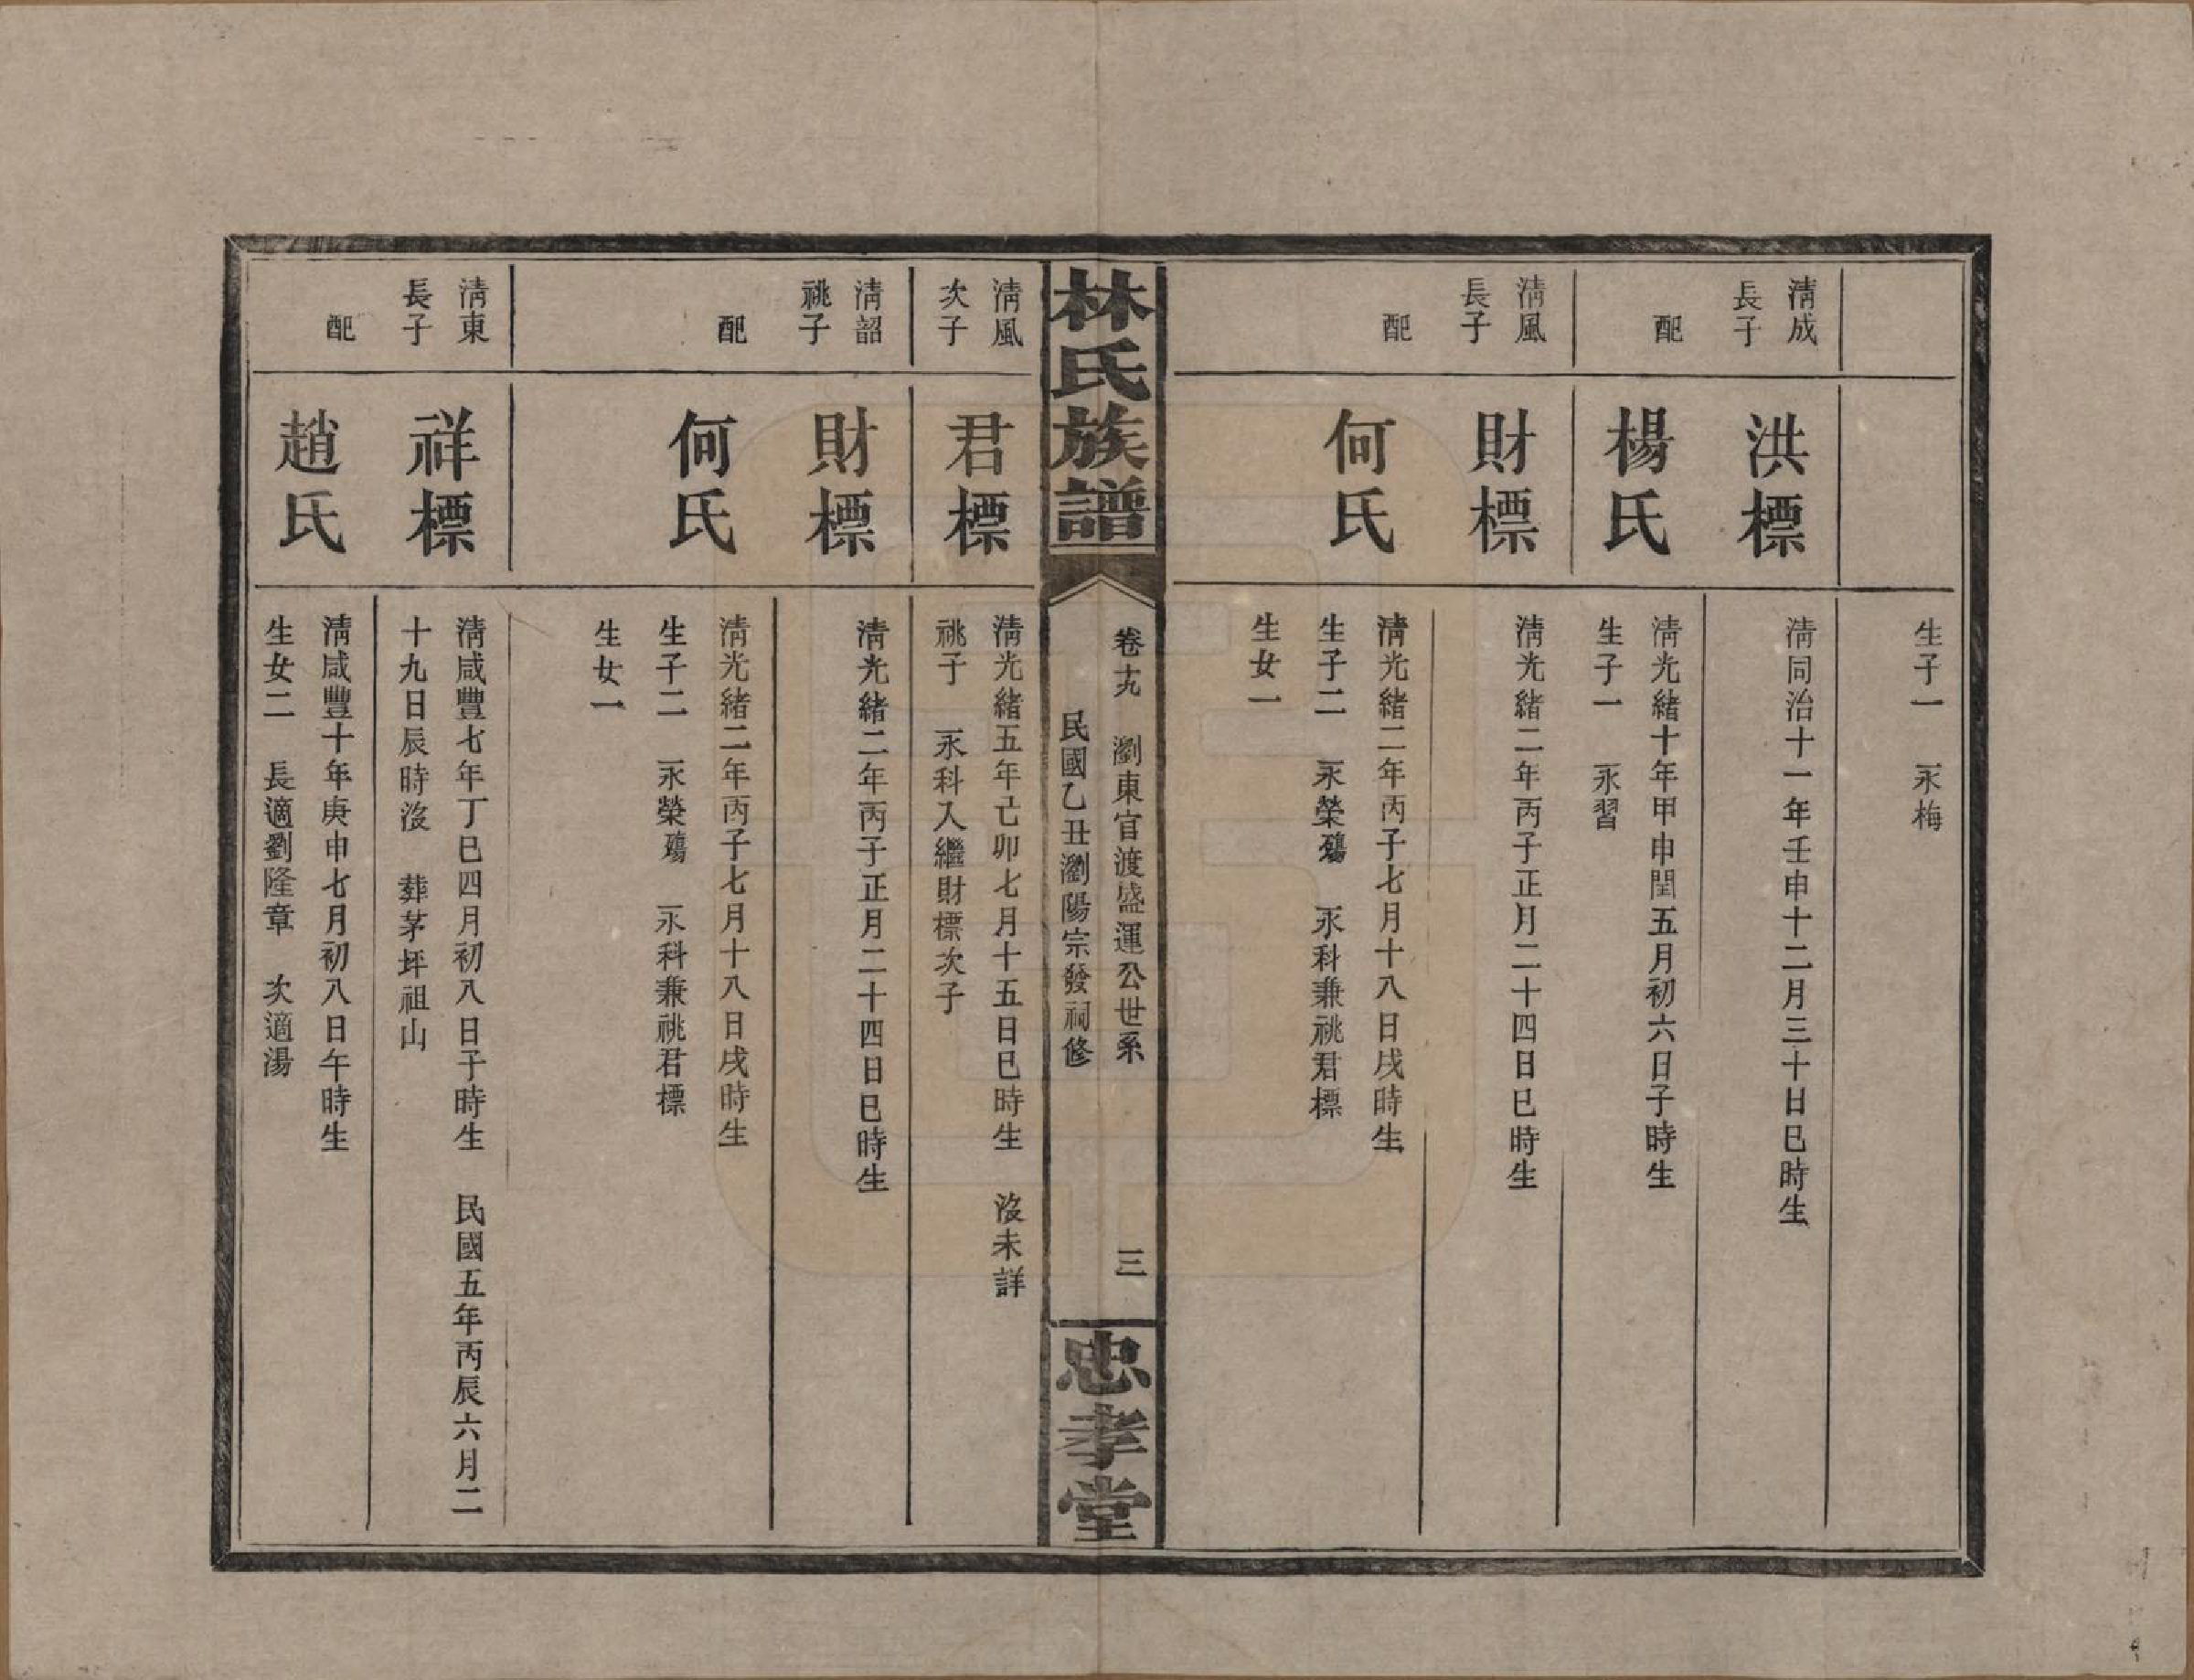 生子一　永梅
清成
長子
洪標
清同治十一年壬申十二月三十日巳時生
配
楊氏
清光緒十年甲申閏五月初六日子時生
生子一　永習
清風
長子
財標
清光緒二年丙子正月二十四日巳時生
配
何氏
清光緒二年丙子七月十八日戌時生
生子二　永榮殤　永科兼祧君標
生女一
林氏族譜
卷十九　瀏東官渡盛運公世系　三
民國乙丑瀏陽宗發祠修
忠孝堂
清風
次子
君標
清光緒五年己卯七月十五日巳時生　沒未詳
祧子　永科入繼財標次子
清韶
祧子
財標
清光緒二年丙子正月二十四日巳時生
配
何氏
清光緒二年丙子七月十八日戌時生
生子二　永榮殤　永科兼祧君標
生女一
清東
長子
祥標
清咸豐七年丁巳四月初八日子時生　民國五年丙辰六月二
十九日辰時沒　葬茅坪祖山
配
趙氏
清咸豐十年庚申七月初八日午時生
生女二　長適劉隆章　次適湯